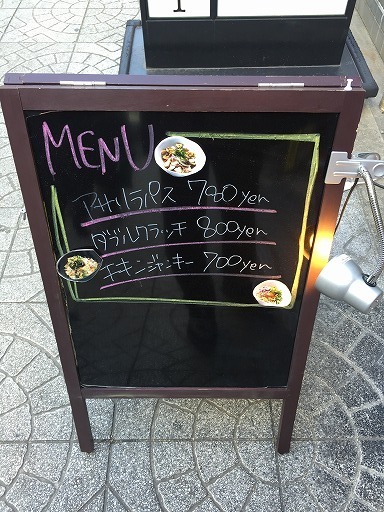 MENU
アサリラパス 780yen
ダブルクラッチ 800yen
チキンジャンキー 700yen